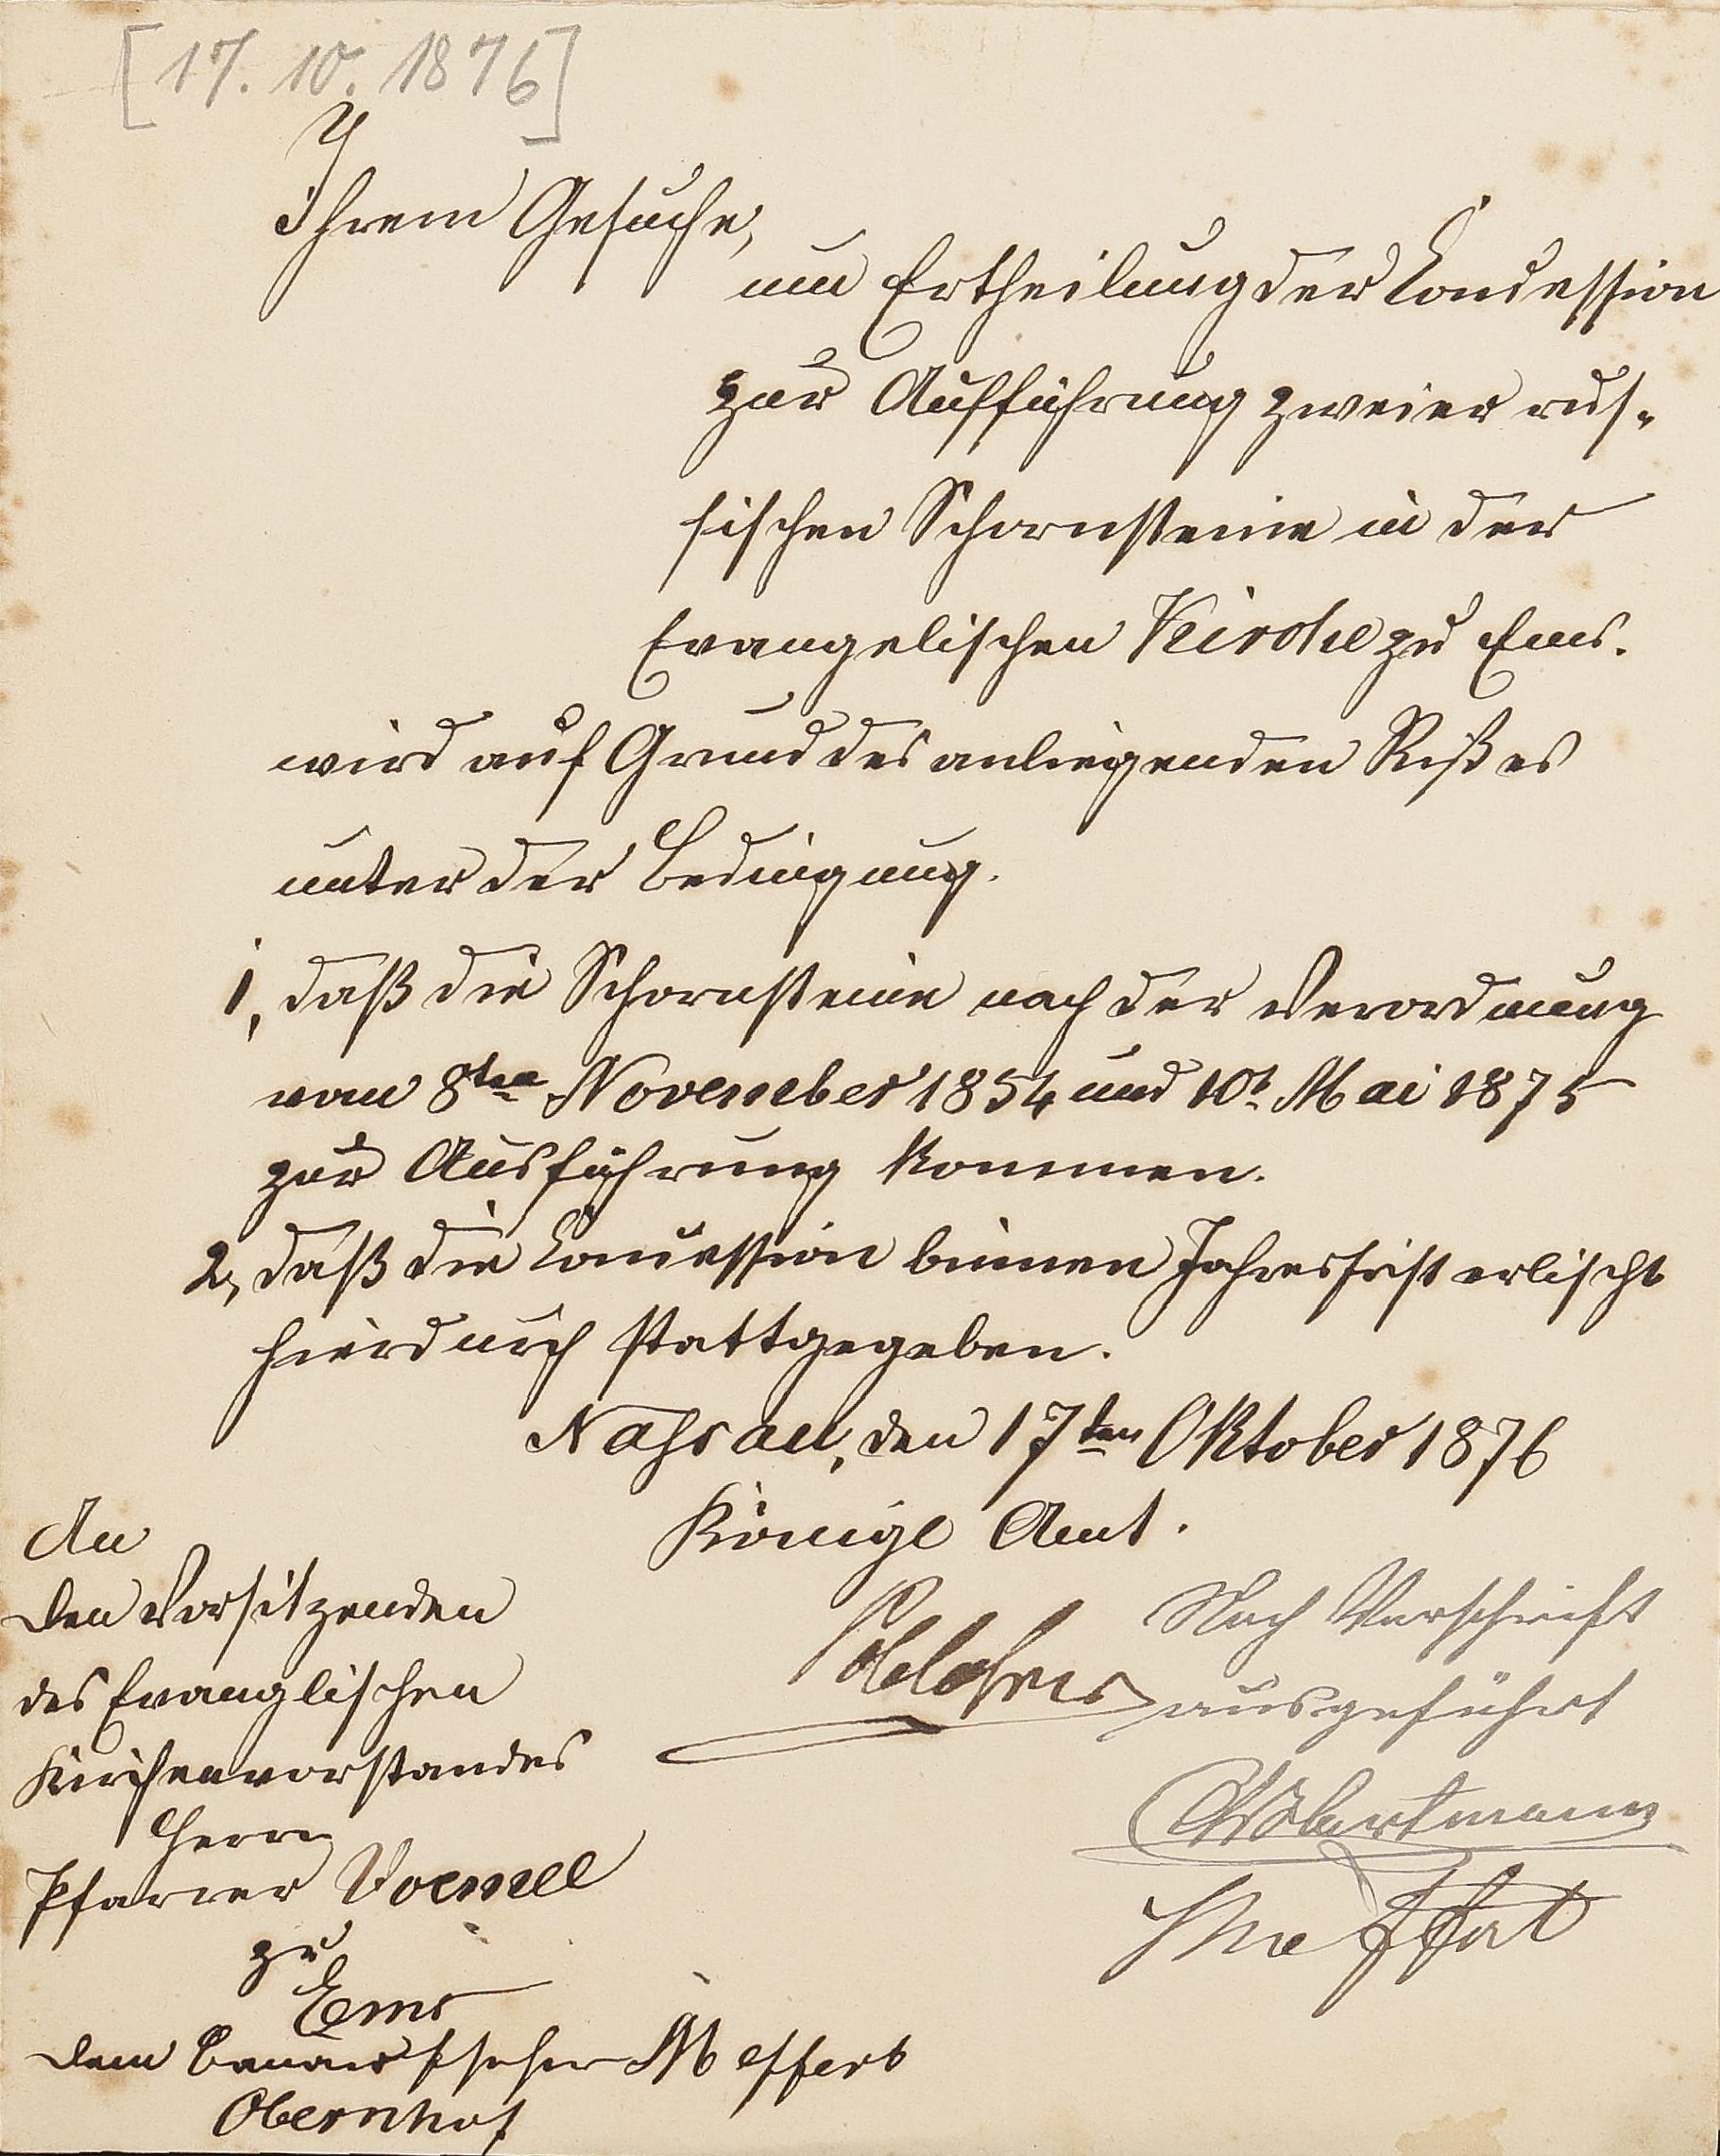 [17. 10. 1876]
Ihrem Gesuche,
um Ertheilung der Condession
zur Aufführung zweier rus-
sischen Schornsteine in der
Evangelischen Kirche zu Ems.
wird auf Grund des anliegenden Rißes
unter der Bedingung.
1, daß die Schornsteine nach der Verordnung
vom 8ten November 1854 und 10t Mai 1875
zur Ausführung kommen.
2, daß die Concession binnen Jahresfrist erlischt
hierdurch stattgegeben.
Nahsau, den 17ten Oktober 1876
Königl Amt.
Nach Vorschrift
ausgeführt
An
den Vorsitzenden
des Evanglischen
Kirchenvorstandes
Herrn
Pfarrer Voemel
zu
Ems
dem Meffert
Obernhof